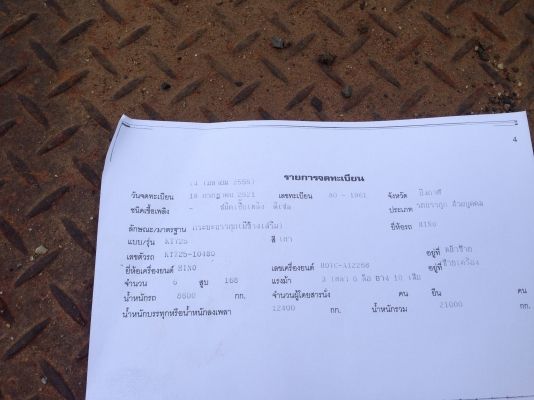 4
(4 เมษายน 2555)
รายการจดทะเบียน
วันจดทะเบียน 16 กรกฎาคม 2521 เลขทะเบียน 80 - 1961 จังหวัด บึงกาฬ
ชนิดเชื้อเพลิง - ชนิดเชื้อเพลิง ดีเซล ประเภท รถบรรทุก ส่วนบุคคล
ลักษณะ/มาตรฐาน ยี่ห้อรถ HINO
แบบ/รุ่น KT725 สี เทา
เลขตัวรถ KT725-10480 อยู่ที่
ยี่ห้อเครื่องยนต์ HINO เลขเครื่องยนต์ อยู่ที่
จำนวน 6 สูบ 166 แรงม้า 3 เพลา 6 ล้อ ยาง 10 เส้น
น้ำหนักรถ 8600 กก. จำนวนผู้โดยสารนั่ง คน ยืน คน
น้ำหนักบรรทุกหรือน้ำหนักลงเพลา 12400 กก. น้ำหนักรวม 21000 กก.